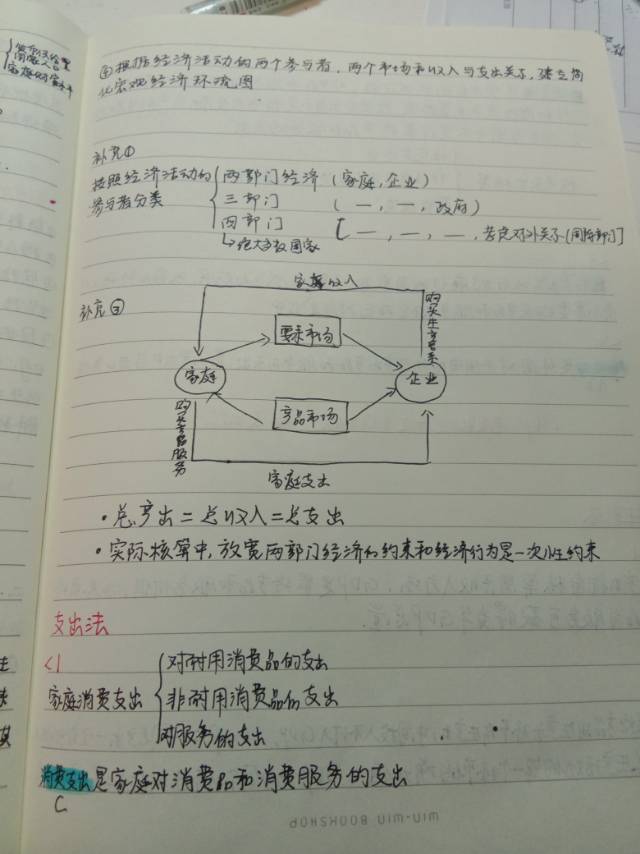 ④根据经济活动的两个参与者，两个市场和收入与支出关系，建立简
化宏观经济环流图
补充①
按照经济活动的
参与者分类
两部门经济（家庭，企业）
三部门（—，—，政府）
四部门[—，—，—，
绝大多数国家
补充②
家庭收入
购买生产要素
要素市场
家庭
企业
产品市场
购买产品服务
家庭支出
·总产出＝总收入＝总支出
·实际核算中，放宽两部门经济的约束和经济行为是一次性约束
支出法
<1
家庭消费支出
对耐用消费品的支出
非耐用消费品的支出
对服务的支出
消费支出是家庭对消费品和消费服务的支出
C
WIN-WIN BOOKSHOP